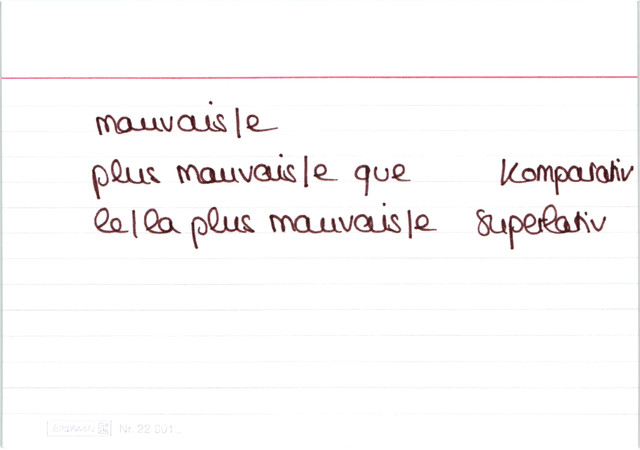 mauvais/e
plus mauvais/e que Komparativ
le/la plus mauvais/e Superlativ
Nr. 22 601